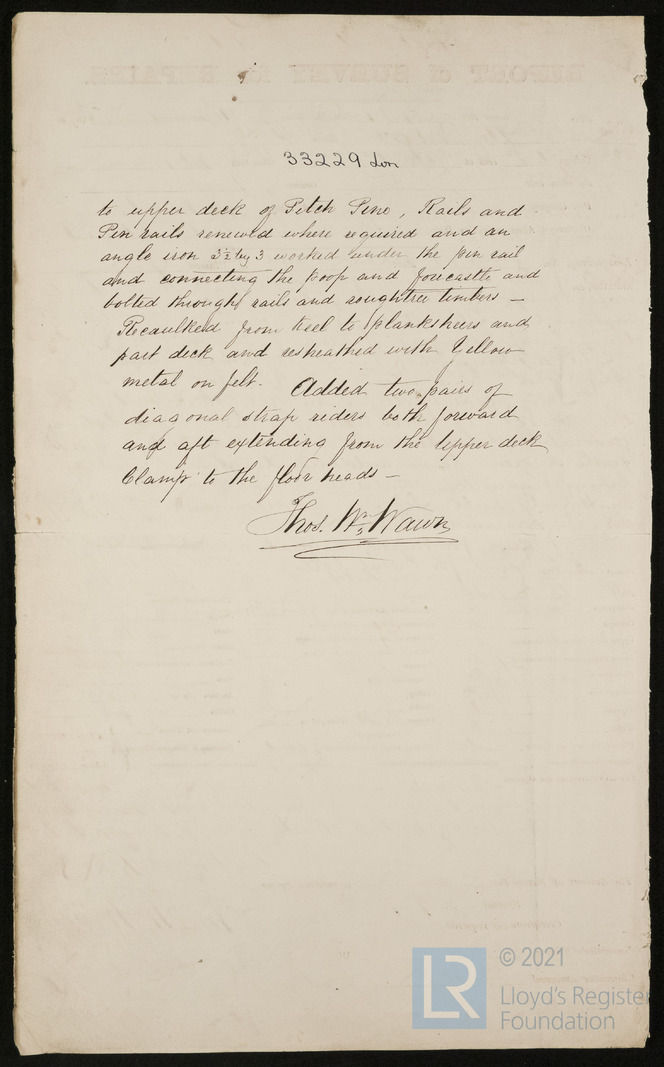 REPORT of SURVEY for REPAIRS.
33229 Lon
to upper deck of Pitch Pine, Rails and
Pin rails renewed where required and an
angle iron 3½ by 3 worked under the pin rail
and connecting the poop and forecastle and
bolted through rails and roughtree timbers —
Recaulked from keel to plankshears and
part deck and resheathed with Yellow
metal on felt. Added two pairs of
diagonal strap riders both forward
and aft extending from the Upper deck
Clamp to the floor heads —
Thos. Wm. Wawn
© 2021
LR
Lloyd's Register
Foundation